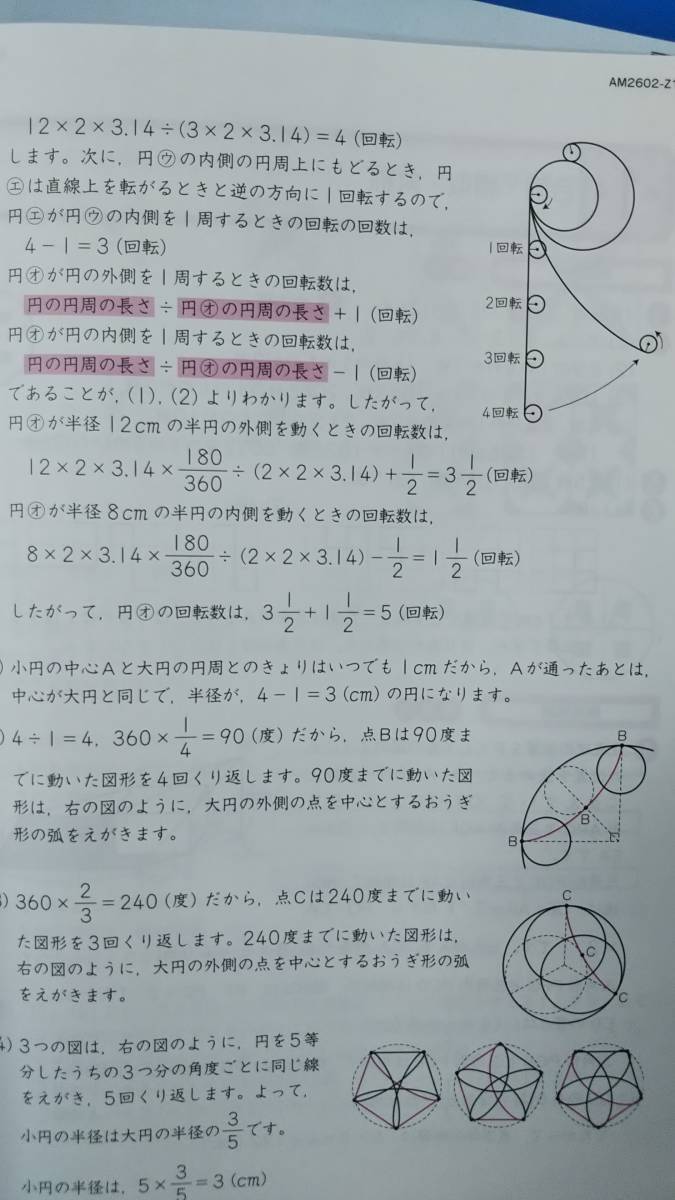 AM2602-Z1
12×2×3.14÷(3×2×3.14)=4(回転)
します。次に，円㋒の内側の円周上にもどるとき，円
㋓は直線上を転がるときと逆の方向に1回転するので，
円㋓が円㋒の内側を1周するときの回転の回数は，
4−1=3(回転)
円㋔が円の外側を1周するときの回転数は，
円の円周の長さ÷円㋔の円周の長さ+1(回転)
円㋔が円の内側を1周するときの回転数は，
円の円周の長さ÷円㋔の円周の長さ−1(回転)
であることが，(1)，(2)よりわかります。したがって，
円㋔が半径12cmの半円の外側を動くときの回転数は，
12×2×3.14×180/360÷(2×2×3.14)+1/2=3 1/2(回転)
円㋔が半径8cmの半円の内側を動くときの回転数は，
8×2×3.14×180/360÷(2×2×3.14)−1/2=1 1/2(回転)
したがって，円㋔の回転数は，3 1/2+1 1/2=5(回転)
1回転
2回転
3回転
4回転
)小円の中心Aと大円の円周とのきょりはいつでも1cmだから，Aが通ったあとは，
中心が大円と同じで，半径が，4−1=3(cm)の円になります。
)4÷1=4，360×1/4=90(度)だから，点Bは90度ま
でに動いた図形を4回くり返します。90度までに動いた図
形は，右の図のように，大円の外側の点を中心とするおうぎ
形の弧をえがきます。
B
B
B
3)360×2/3=240(度)だから，点Cは240度までに動い
た図形を3回くり返します。240度までに動いた図形は，
右の図のように，大円の外側の点を中心とするおうぎ形の弧
をえがきます。
C
C
C
4)3つの図は，右の図のように，円を5等
分したうちの3つ分の角度ごとに同じ線
をえがき，5回くり返します。よって，
小円の半径は大円の半径の3/5です。
小円の半径は，5×3/5=3(cm)